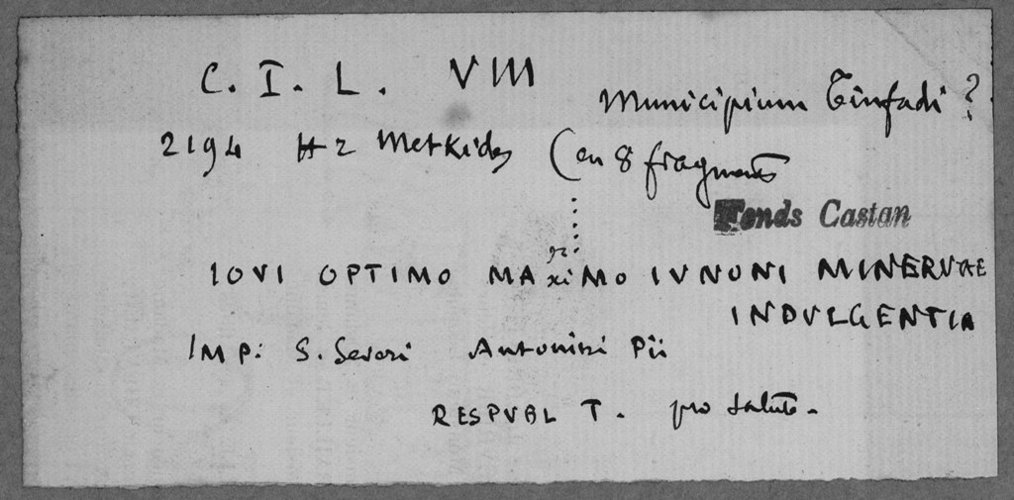 C. I. L. VIII
Municipium Tinfadi ?
2194 Hr Metkides (en 8 fragments
Fonds Castan
IOVI OPTIMO MAxiMO IVNONI MINERVAE
INDVLGENTIA
IMP: S. Severi Antonini Pii
RESPVBL T. pro salute.